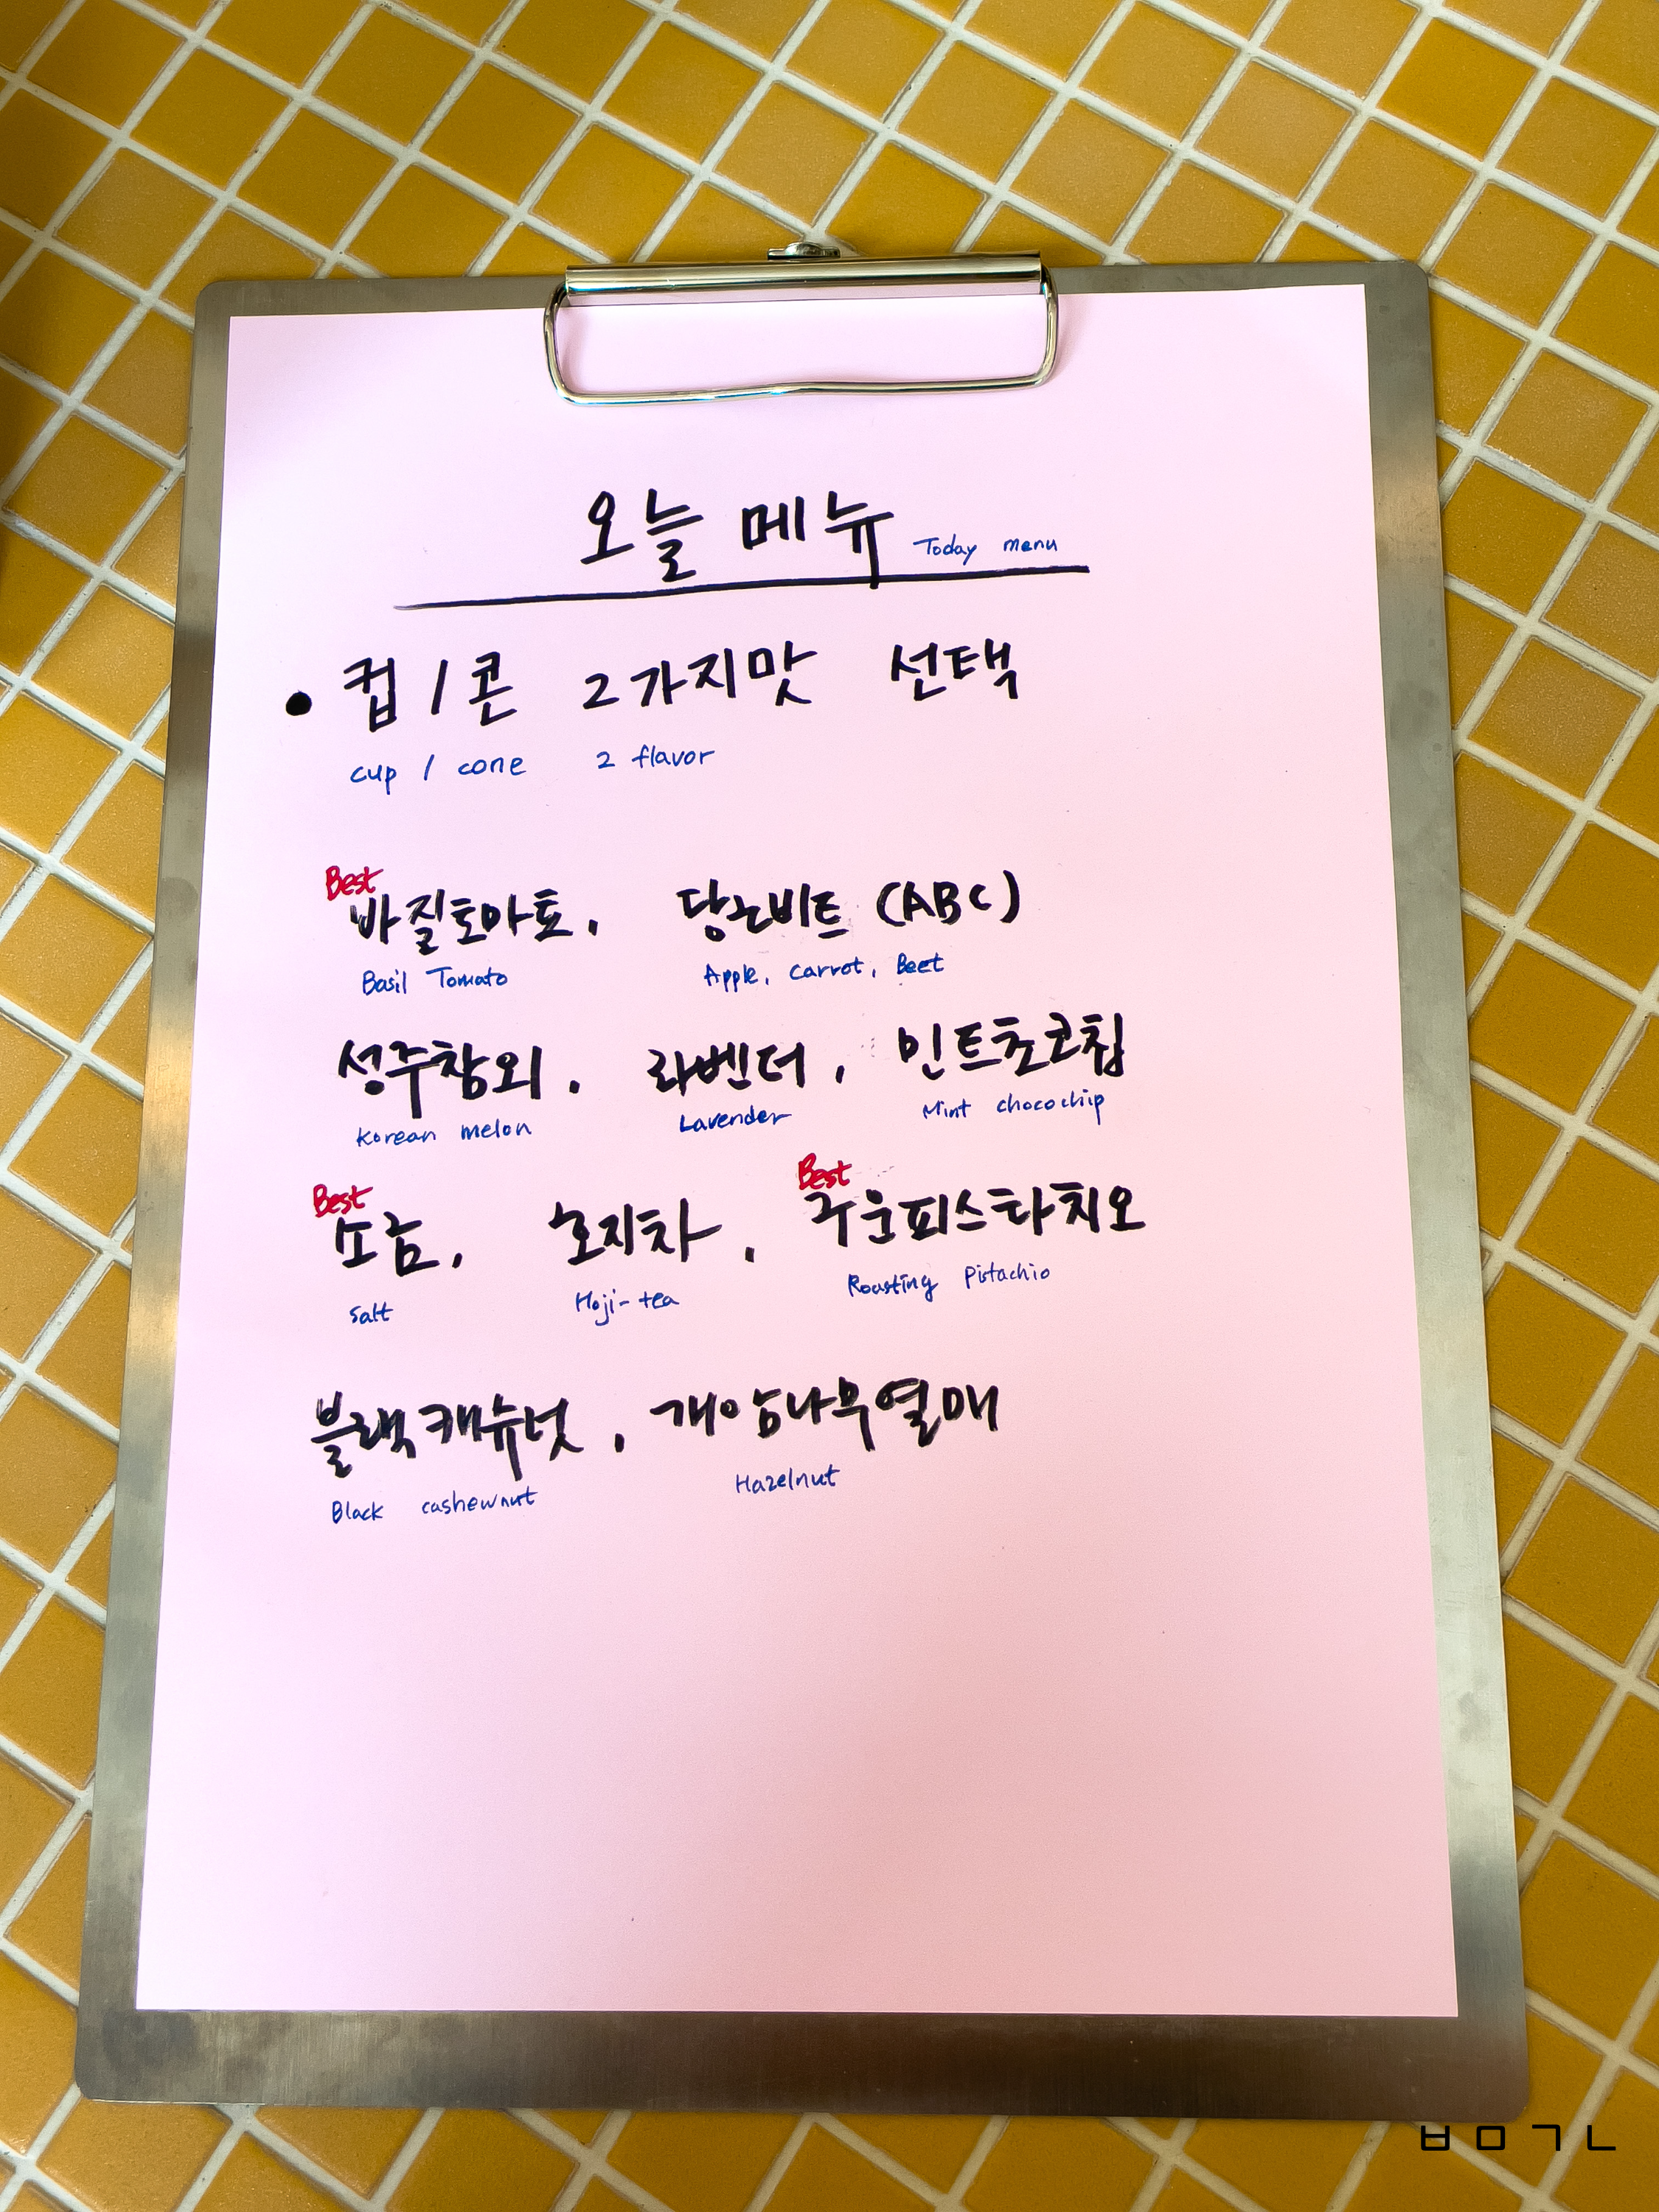 오늘 메뉴 Today menu
• 컵 / 콘 2가지맛 선택
cup / cone 2 flavor
Best
바질토마토, 당근비트 (ABC)
Basil Tomato Apple, Carrot, Beet
성주참외, 라벤더, 민트초코칩
Korean melon Lavender Mint chocochip
Best Best
소금, 호지차, 구운피스타치오
Salt Hoji-tea Roasting Pistachio
블랙캐슈넛, 개암나무열매
Black cashewnut Hazelnut
ㅂㅁㄱㄴ